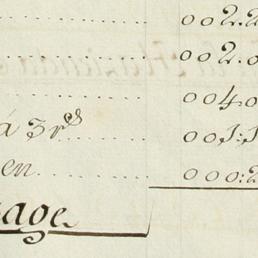 002.2
002.0
004.0
á 3 r.s 001:1
en 000:2
age